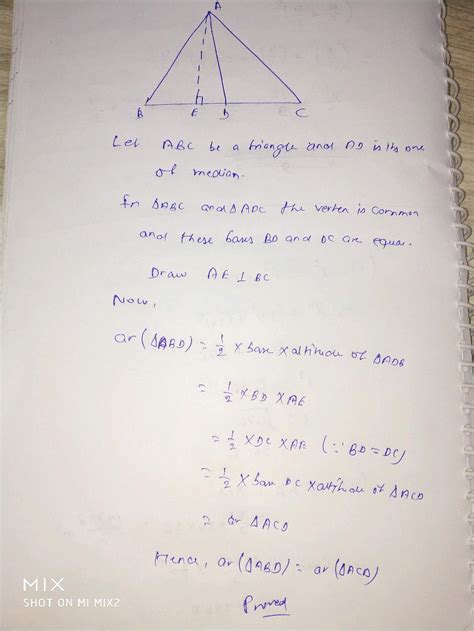 A
B E D C
Let ABC be a triangle and AD is its one
of median.
In ΔABC and ΔADC the vertex is common
and these bases BD and DC are equal.
Draw AE ⊥ BC
Now,
ar(ΔABD) = 1/2 × base × altitude of ΔADB
= 1/2 × BD × AE
= 1/2 × DC × AE (∵ BD = DC)
= 1/2 × base DC × altitude of ΔACD
= ar ΔACD
Hence, ar(ΔABD) = ar(ΔACD)
Proved
MIX
SHOT ON MI MIX2